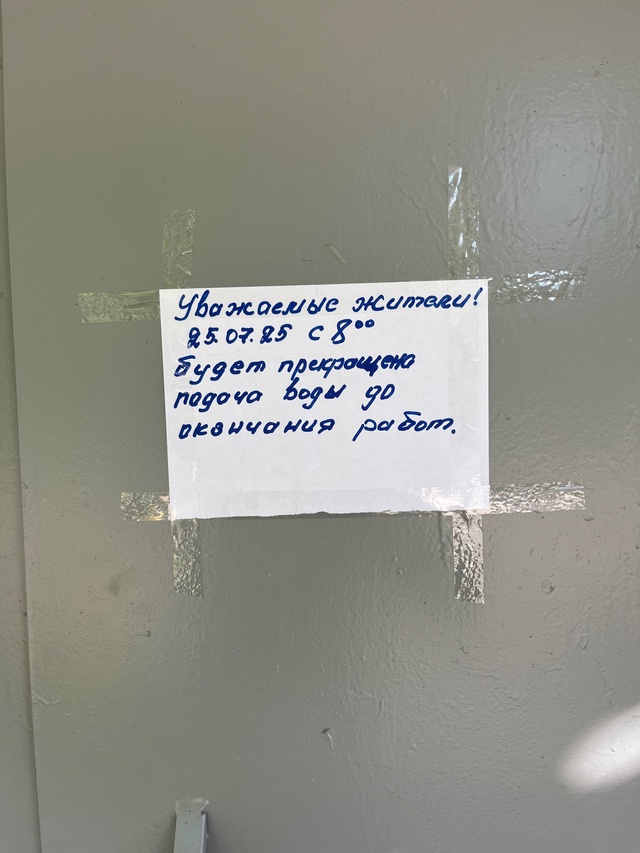 Уважаемые жители!
25.07.25 с 8⁰⁰
будет прекращена
подача воды до
окончания работ.